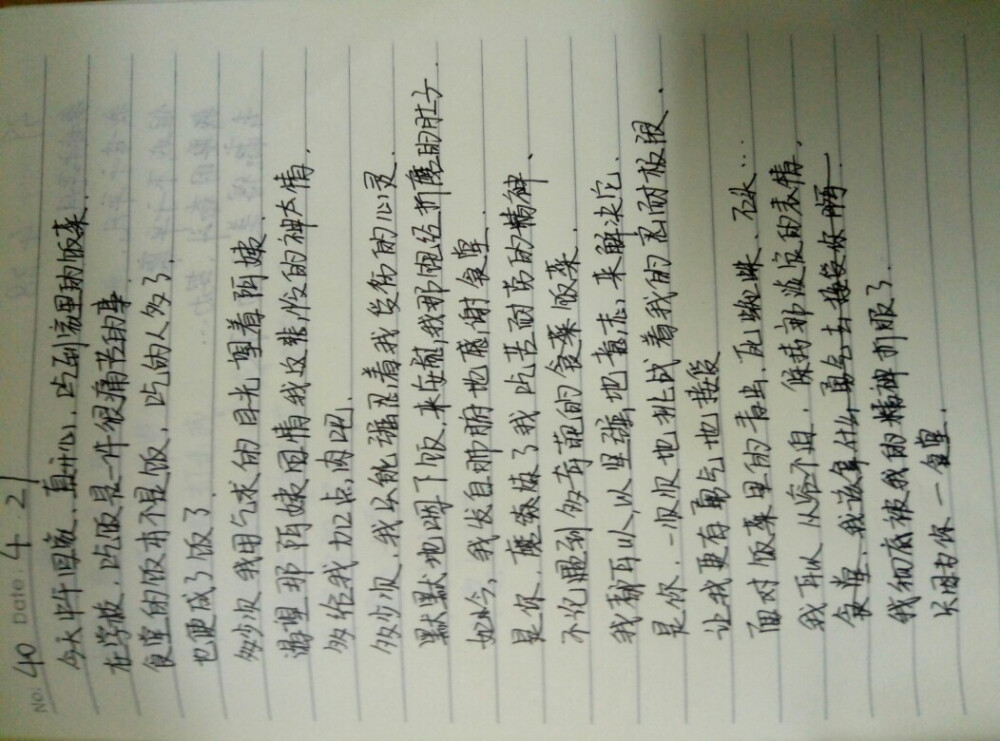 No: 40 Date. 4. 21
今天中午回家，真开心，吃到家里的饭菜.
在学校，吃饭是一件很痛苦的事
食堂的饭本不是饭，吃的人多了
也便成了饭了
多少次我用乞求的目光望着阿姨
渴望那阿姨同情我这悲伤的神态情.
多给我加点肉吧.
多少次，我只能强忍着我受伤的心灵.
默默地咽下饭，来在 我那饱经折磨的肚子.
如今，我发自肺腑地感谢食堂
是你，磨炼了我吃苦耐劳的精神、
不论遇到多奇葩的食菜饭菜.
我都可以以坚强地意志，来解决它.
是你，一次次地挑战着我的忍耐极限、
让我更有勇气地接受
面对饭菜里的青虫、死蜘蛛、石头…
我可以从容不迫，保持那淡定的表情.
食堂，我该拿什么勇气去接妥你啊
我彻底被我的精神折服了.
只因为你一食堂